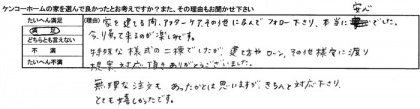 ケンコーホームの家を選んで良かったとお考えですか？また、その理由もお聞かせ下さい
たいへん満足
満足
どちらとも言えない
不満
たいへん不満
(理由) 家を建てる間、アフターケアその他に及んでフォロー下さり、本当に安心でした。
今から見て来るのが楽しみです。
特殊な様式の工換でしたが、建て方やローン、その他様々に渡り
親切対応頂きありがとうございました。
無理な注文もあったかとは思いますが、きちんと対応下さり、
とても嬉しかったです。